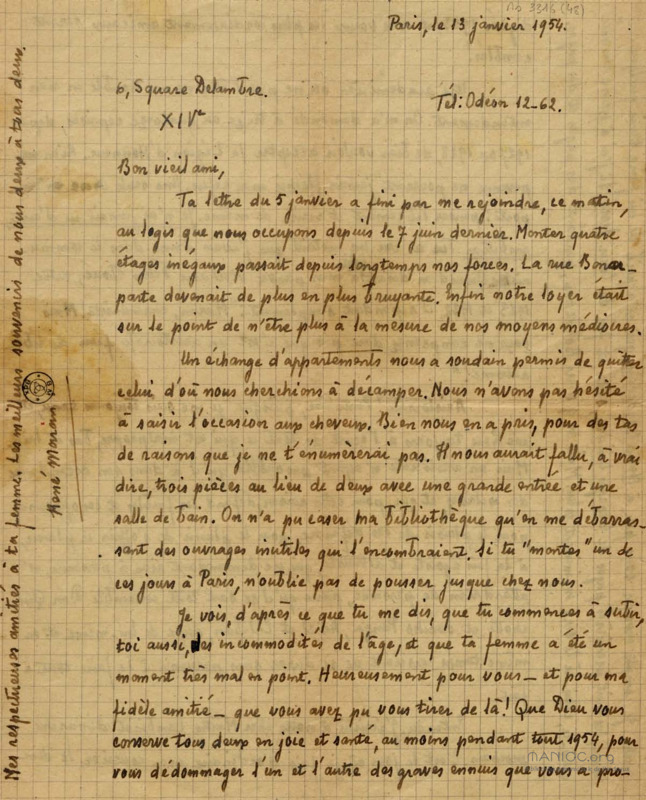 No 3316 (48)
Paris, le 13 janvier 1954.
6, Square Delambre.
XIVe
Tél: Odéon 12-62.
Bon vieil ami,
Ta lettre du 5 janvier a fini par me rejoindre, ce matin,
au logis que nous occupons depuis le 7 juin dernier. Monter quatre
étages inégaux passait depuis longtemps nos forces. La rue Bona-
parte devenait de plus en plus bruyante. Enfin notre loyer était
sur le point de n'être plus à la mesure de nos moyens médiocres.
Un échange d'appartements nous a soudain permis de quitter
celui d'où nous cherchions à décamper. Nous n'avons pas hésité
à saisir l'occasion aux cheveux. Bien nous en a pris, pour des tas
de raisons que je ne t'énumèrerai pas. Il nous aurait fallu, à vrai
dire, trois pièces au lieu de deux avec une grande entrée et une
salle de bain. On n'a pu caser ma bibliothèque qu'en me débarras-
sant des ouvrages inutiles qui l'encombraient. Si tu "montes" un de
ces jours à Paris, n'oublie pas de pousser jusque chez nous.
Je vois, d'après ce que tu me dis, que tu commences à subir,
toi aussi, les incommodités de l'âge, et que ta femme a été un
moment très mal en point. Heureusement pour vous - et pour ma
fidèle amitié - que vous avez pu vous tirer de là! Que Dieu vous
conserve tous deux en joie et santé, au moins pendant tout 1954, pour
vous dédommager l'un et l'autre des graves ennuis que vous a pro-
Mes respectueuses amitiés à ta femme. Les meilleurs souvenirs de nous deux à tous deux.
René Maran
MANIOC.org